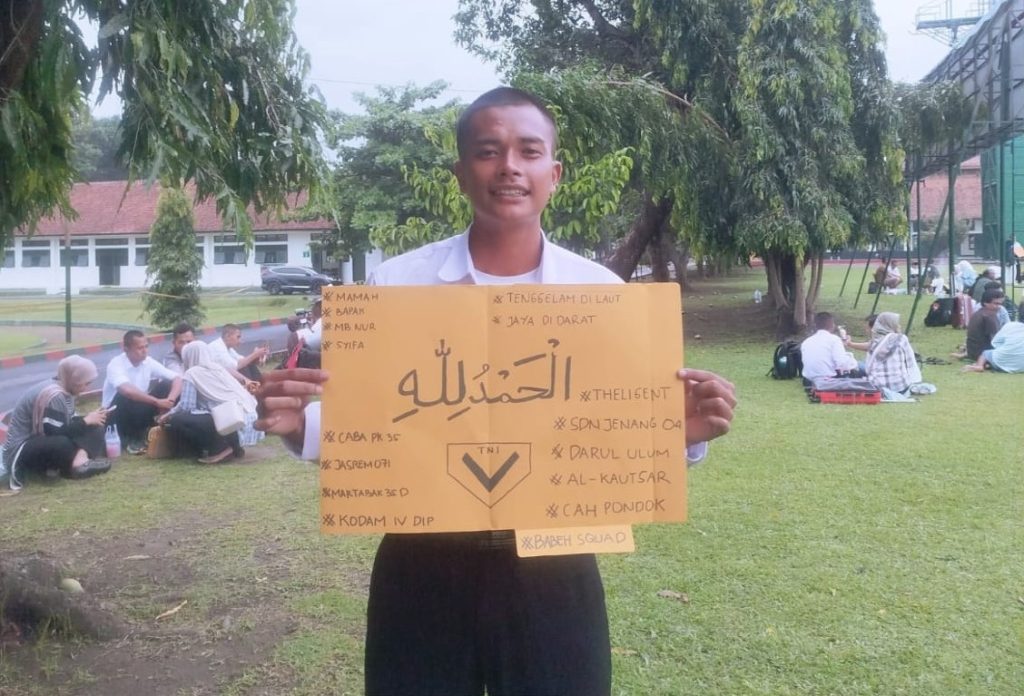 # MAMAH
# BAPAK
# MB NUR
# SYIFA
# TENGGELAM DI LAUT
# JAYA DI DARAT
الْحَمْدُ لِلّٰهِ
# THELIGENT
# SDN JENANG 04
# DARUL ULUM
# AL-KAUTSAR
# CAH PONDOK
# CABA PK 35
# JASREM 071
# MARTABAK 35 D
# KODAM IV DIP
TNI
# BABEH SQUAD